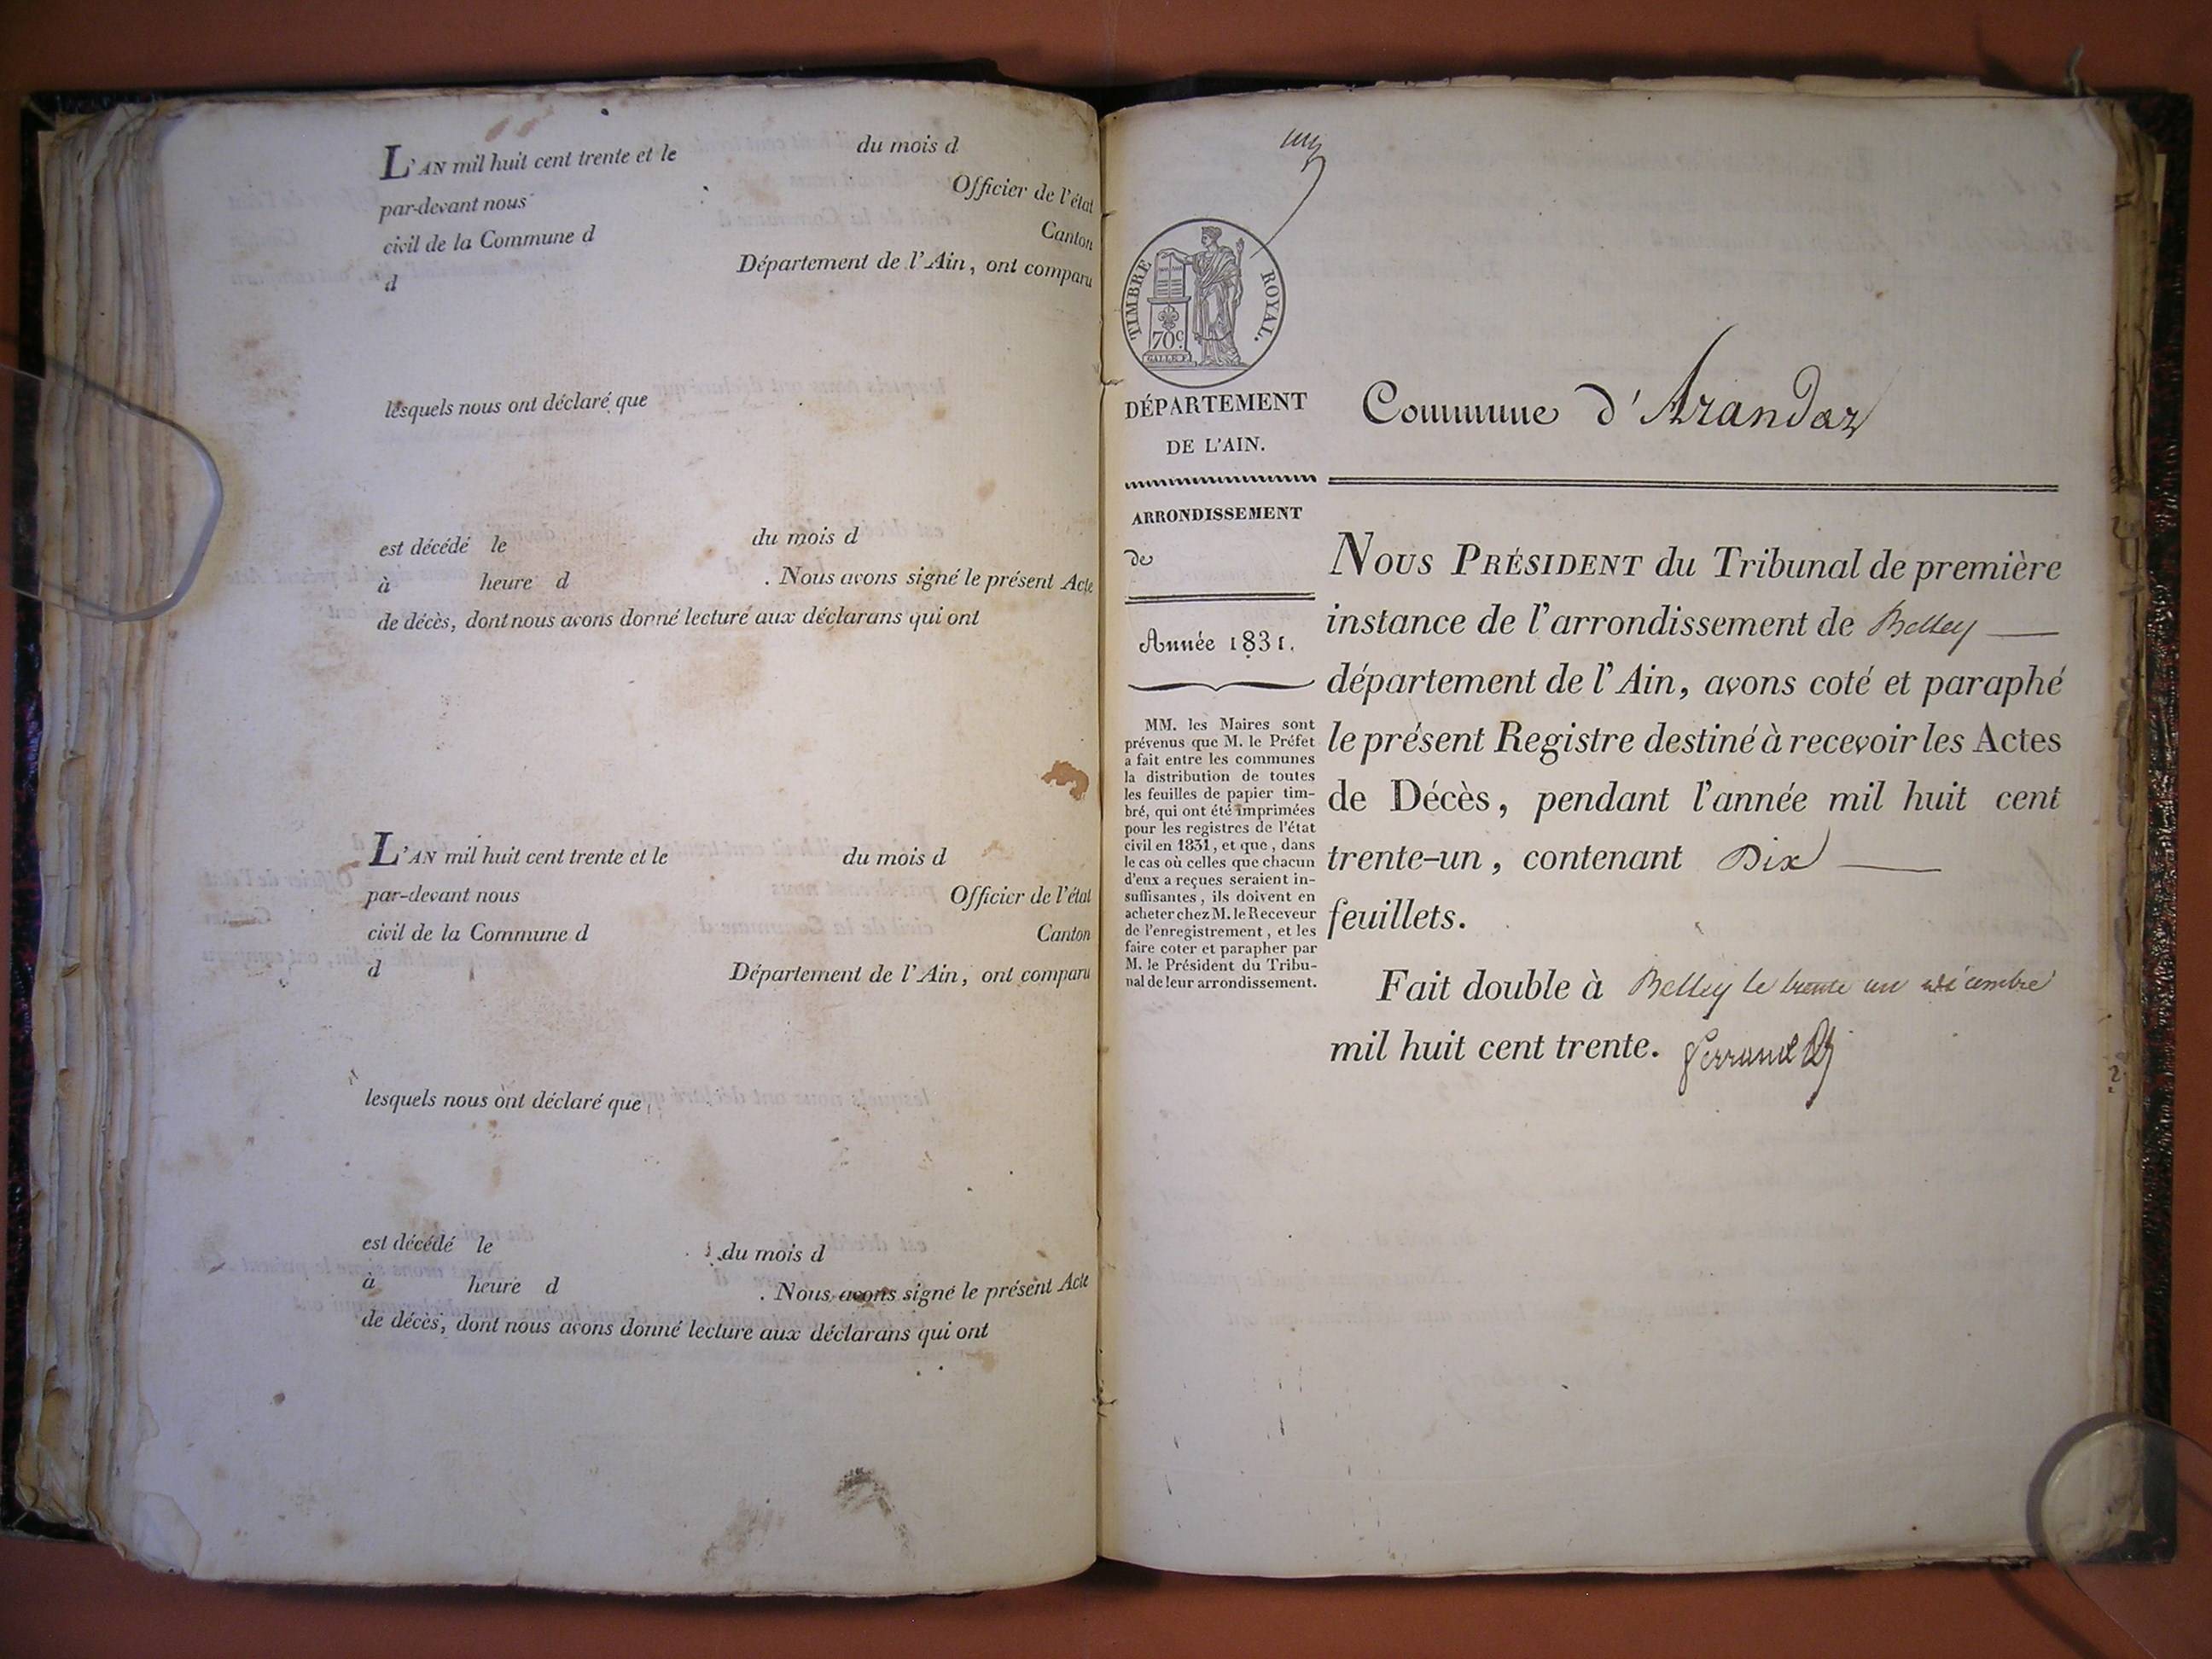 L'AN mil huit cent trente et le du mois d
par-devant nous Officier de l'état
civil de la Commune d Canton
d Département de l'Ain, ont comparu
lesquels nous ont déclaré que
est décédé le du mois d
à heure d . Nous avons signé le présent Acte
de décès, dont nous avons donné lecture aux déclarans qui ont
L'AN mil huit cent trente et le du mois d
par-devant nous Officier de l'état
civil de la Commune d Canton
d Département de l'Ain, ont comparu
lesquels nous ont déclaré que
est décédé le du mois d
à heure d . Nous avons signé le présent Acte
de décès, dont nous avons donné lecture aux déclarans qui ont
TIMBRE ROYAL.
70c.
GALLE F.
DÉPARTEMENT
DE L'AIN.
ARRONDISSEMENT
de
Année 1831.
MM. les Maires sont
prévenus que M. le Préfet
a fait entre les communes
la distribution de toutes
les feuilles de papier tim-
bré, qui ont été imprimées
pour les registres de l'état
civil en 1831, et que, dans
le cas où celles que chacun
d'eux a reçues seraient in-
suffisantes, ils doivent en
acheter chez M. le Receveur
de l'enregistrement, et les
faire coter et parapher par
M. le Président du Tribu-
nal de leur arrondissement.
Commune d'Arandas
NOUS PRÉSIDENT du Tribunal de première
instance de l'arrondissement de Belley
département de l'Ain, avons coté et paraphé
le présent Registre destiné à recevoir les Actes
de Décès, pendant l'année mil huit cent
trente-un, contenant Dix
feuillets.
Fait double à Belley le trente un décembre
mil huit cent trente.